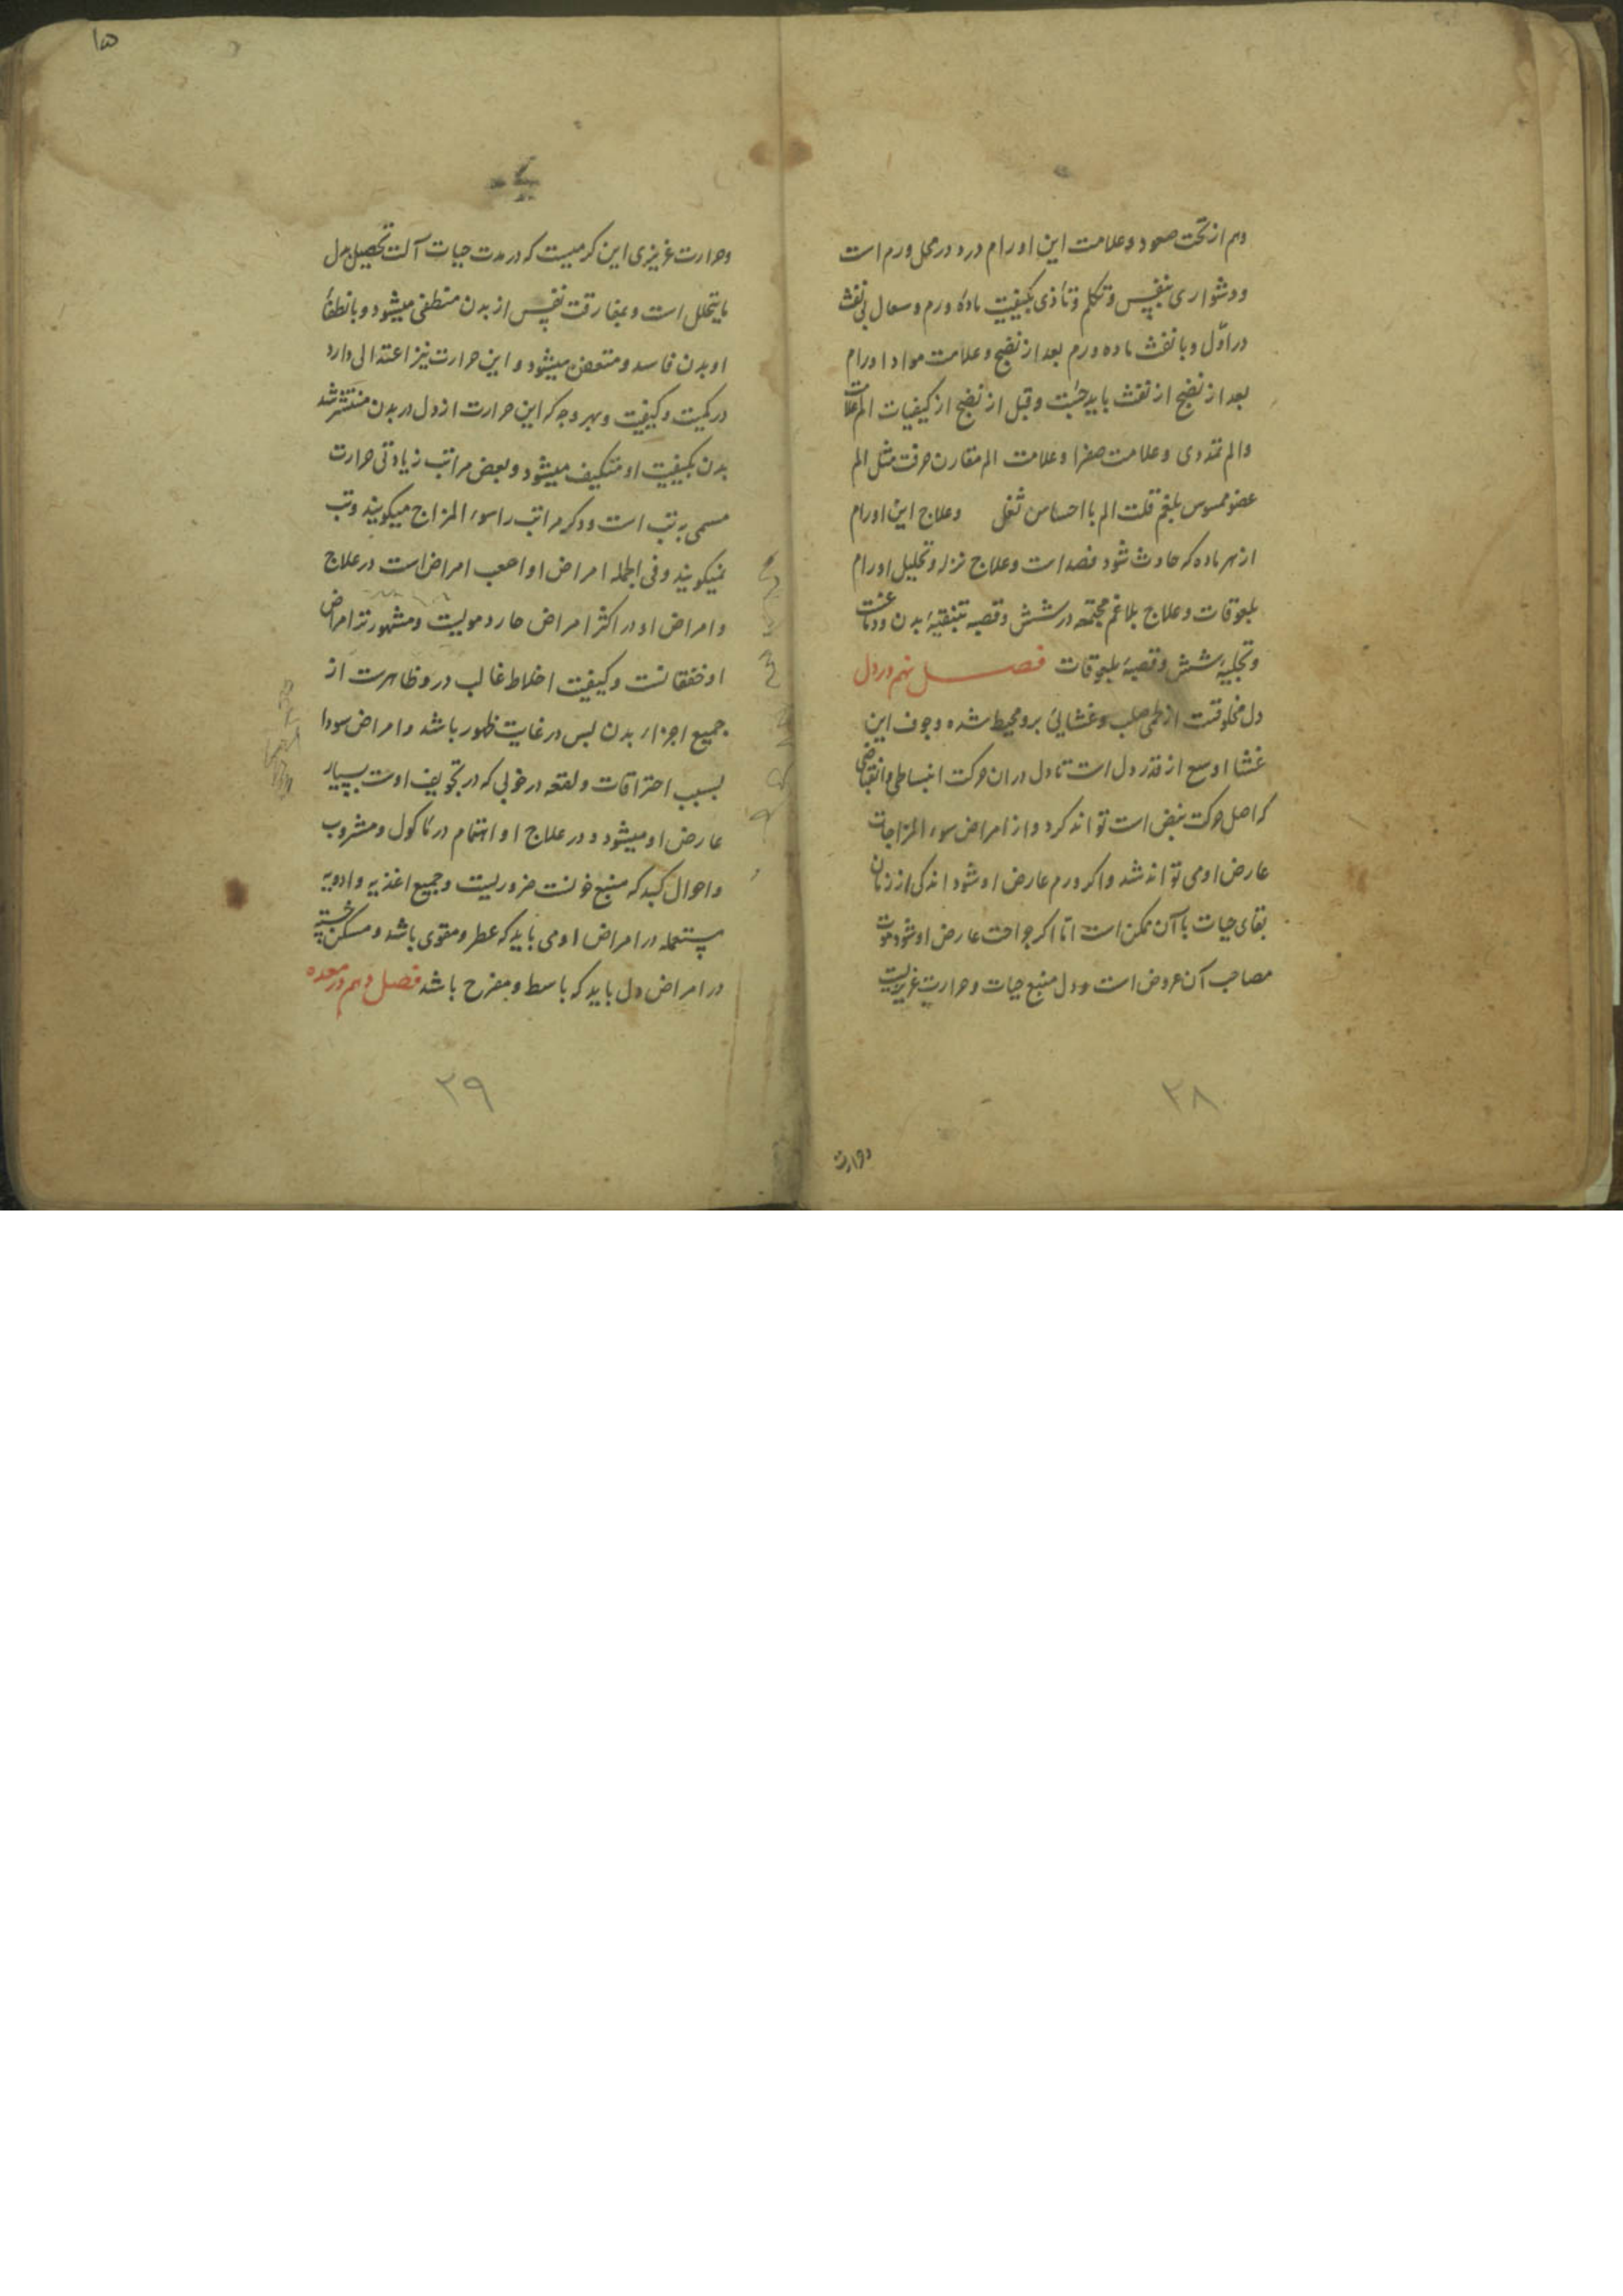 وهم از تحت صعود و علامت این اورام درد در محل ورم است
و دشواری تنفس و تکلم و تاذی بکیفیت ماده ورم و سعال بی نفث
در اول و با نفث ماده ورم بعد از نضج و علامت مواد اورام
بعد از نضج از نفث باید جست و قبل از نضج از کیفیات الم علامت
والم تمددی و علامت صفرا و علامت الم مقارن حرقت مثل الم
عضو ملموس بلغم قلت الم با احساس ثقل وعلاج این اورام
از هر ماده که حادث شود فصد است و علاج نزله و تحلیل اورام
بلعوقات و علاج بلاغم مجتمعه در شش و قصبه بتنقیهٔ بدن و دماغست
و تجلیهٔ شش و قصبهٔ بلعوقات فصل نهم در دل
دل مخلوقست از لحمی صلب و غشایی برو محیط شده و جوف این
غشا اوسع از قدر دل است تا دل دران حرکت انبساطی و انقباضی
که اصل حرکت نبض است تواند کرد و از امراض سوء المزاجات
عارض او می تواند شد و اکر ورم عارض او شود اندکی از زمان
بقای حیات با آن ممکن است اما اکر جراحت عارض او شود موت
مصاحب آن عروض است و دل منبع حیات و حرارت غریزیست
۲۸
وحرارت
۱۵
وحرارت غریزی این کرمیست که در مدت حیات آلت تحصیل بدل
مایتحلل است و بمفارقت نفس از بدن منطفی میشود و بانطفاء
او بدن فاسد و متعفن میشود و این حرارت نیز اعتدالی دارد
در کمیت و کیفیت و بهر وجه که این حرارت از دل در بدن منتشر شد
بدن بکیفیت او متکیف میشود و بعض مراتب زیادتی حرارت
مسمی به تب است و دکر مراتب را سوء المزاج میکویند و تب
نمیکویند و فی الجمله امراض او اصعب امراض است در علاج
و امراض او در اکثر امراض حار دمویست و مشهورتر امراض
او خفقانست و کیفیت اخلاط غالب درو ظاهرست از
جمیع اجزاء بدن پس در غایت ظهور باشد و امراض سودا
بسبب احتراقات ولقعه در خونی که در تجویف اوست بسیار
عارض او میشود و در علاج او اهتمام در ماکول و مشروب
واحوال کبد که منبع خونست ضروریست و جمیع اغذیه و ادویه
مستعمله در امراض او می باید که عطر و مقوی باشد و مسکن
در امراض دل باید که باسط و مفرح باشد فصل دهم در معده
۲۹